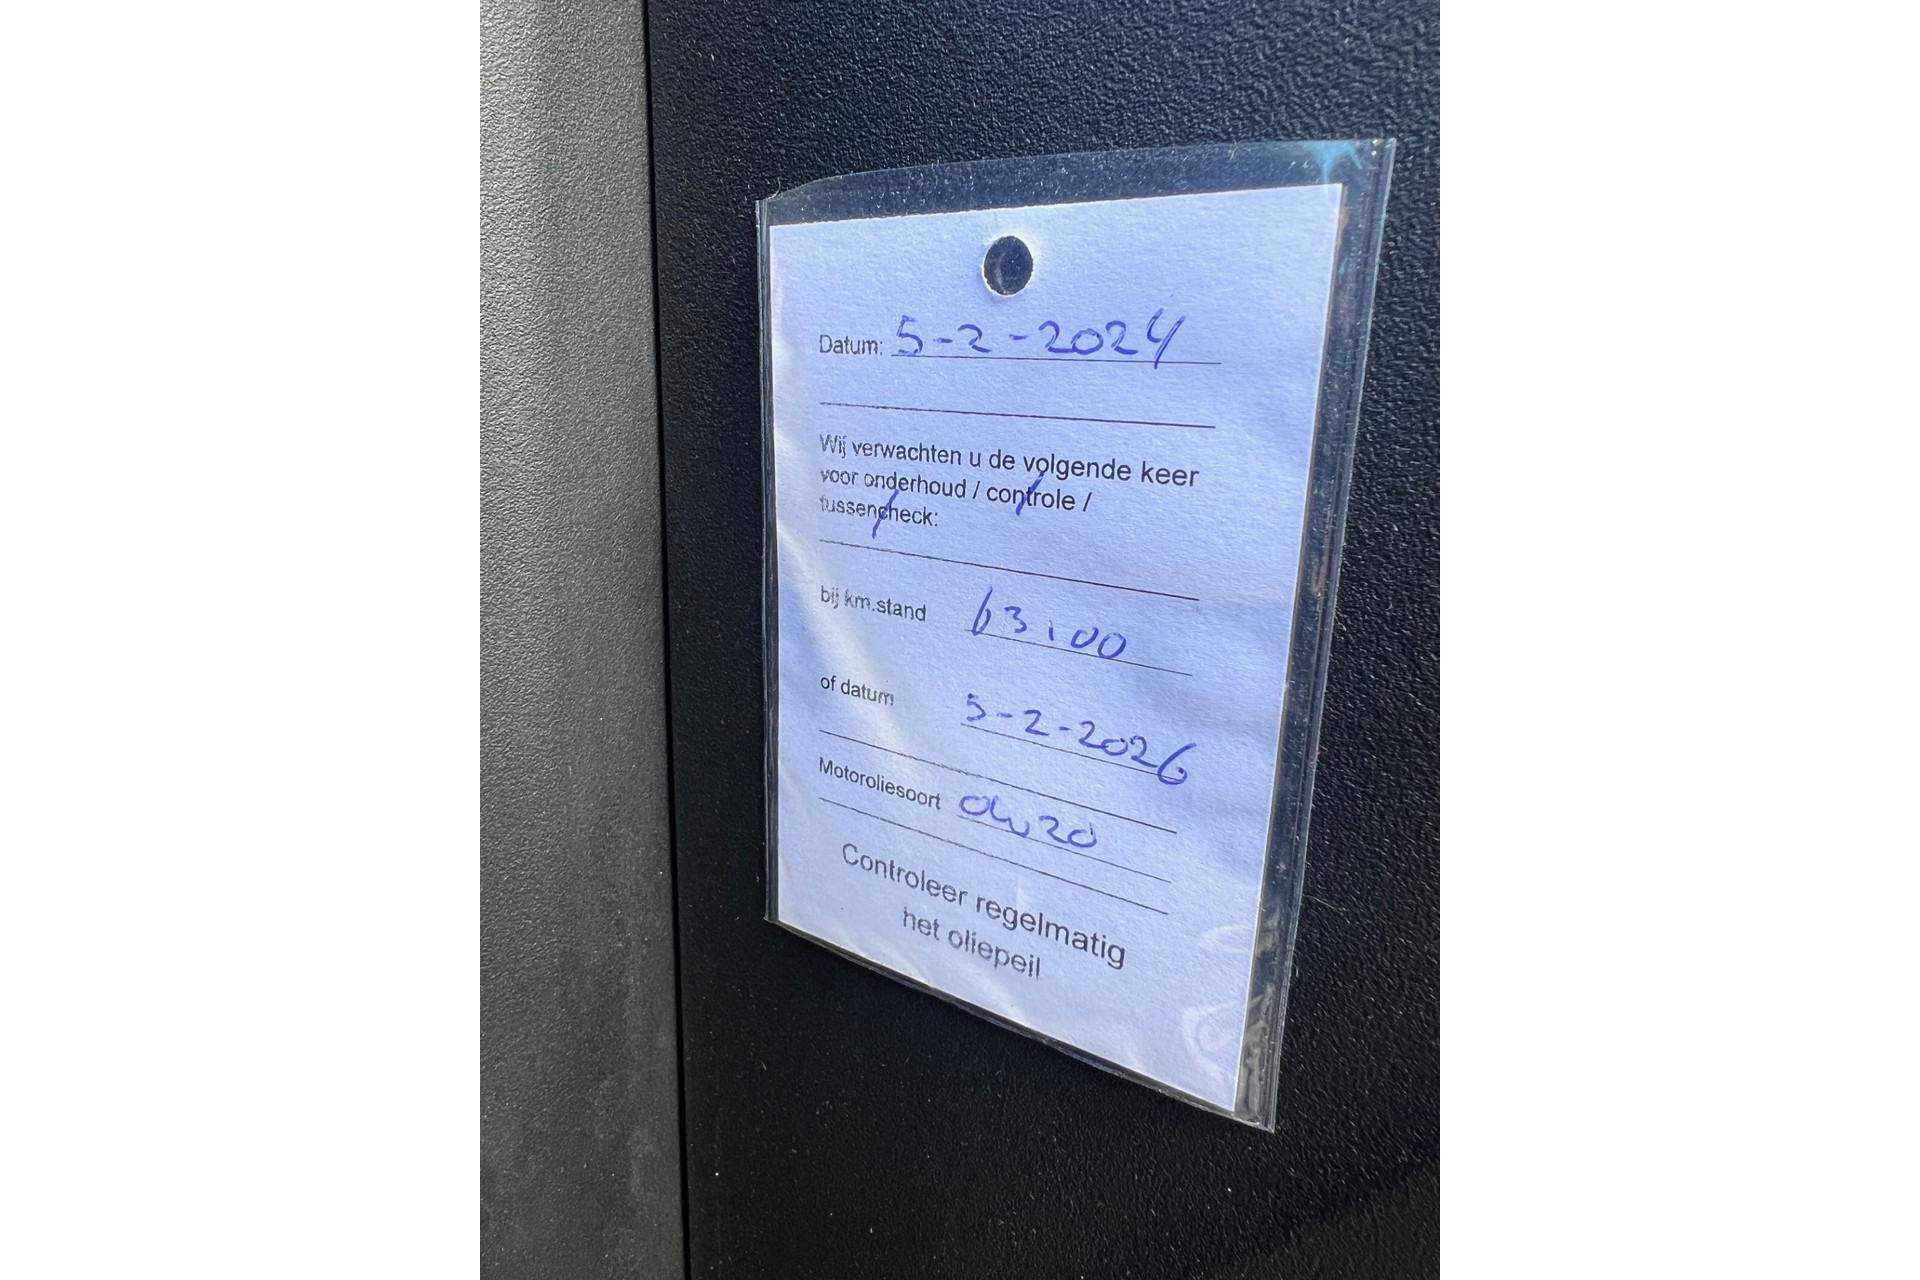 Datum: 5-2-2024
Wij verwachten u de volgende keer
voor onderhoud / controle /
tussencheck:
bij km.stand 63.00
of datum 5-2-2026
Motoroliesoort 0w20
Controleer regelmatig
het oliepeil